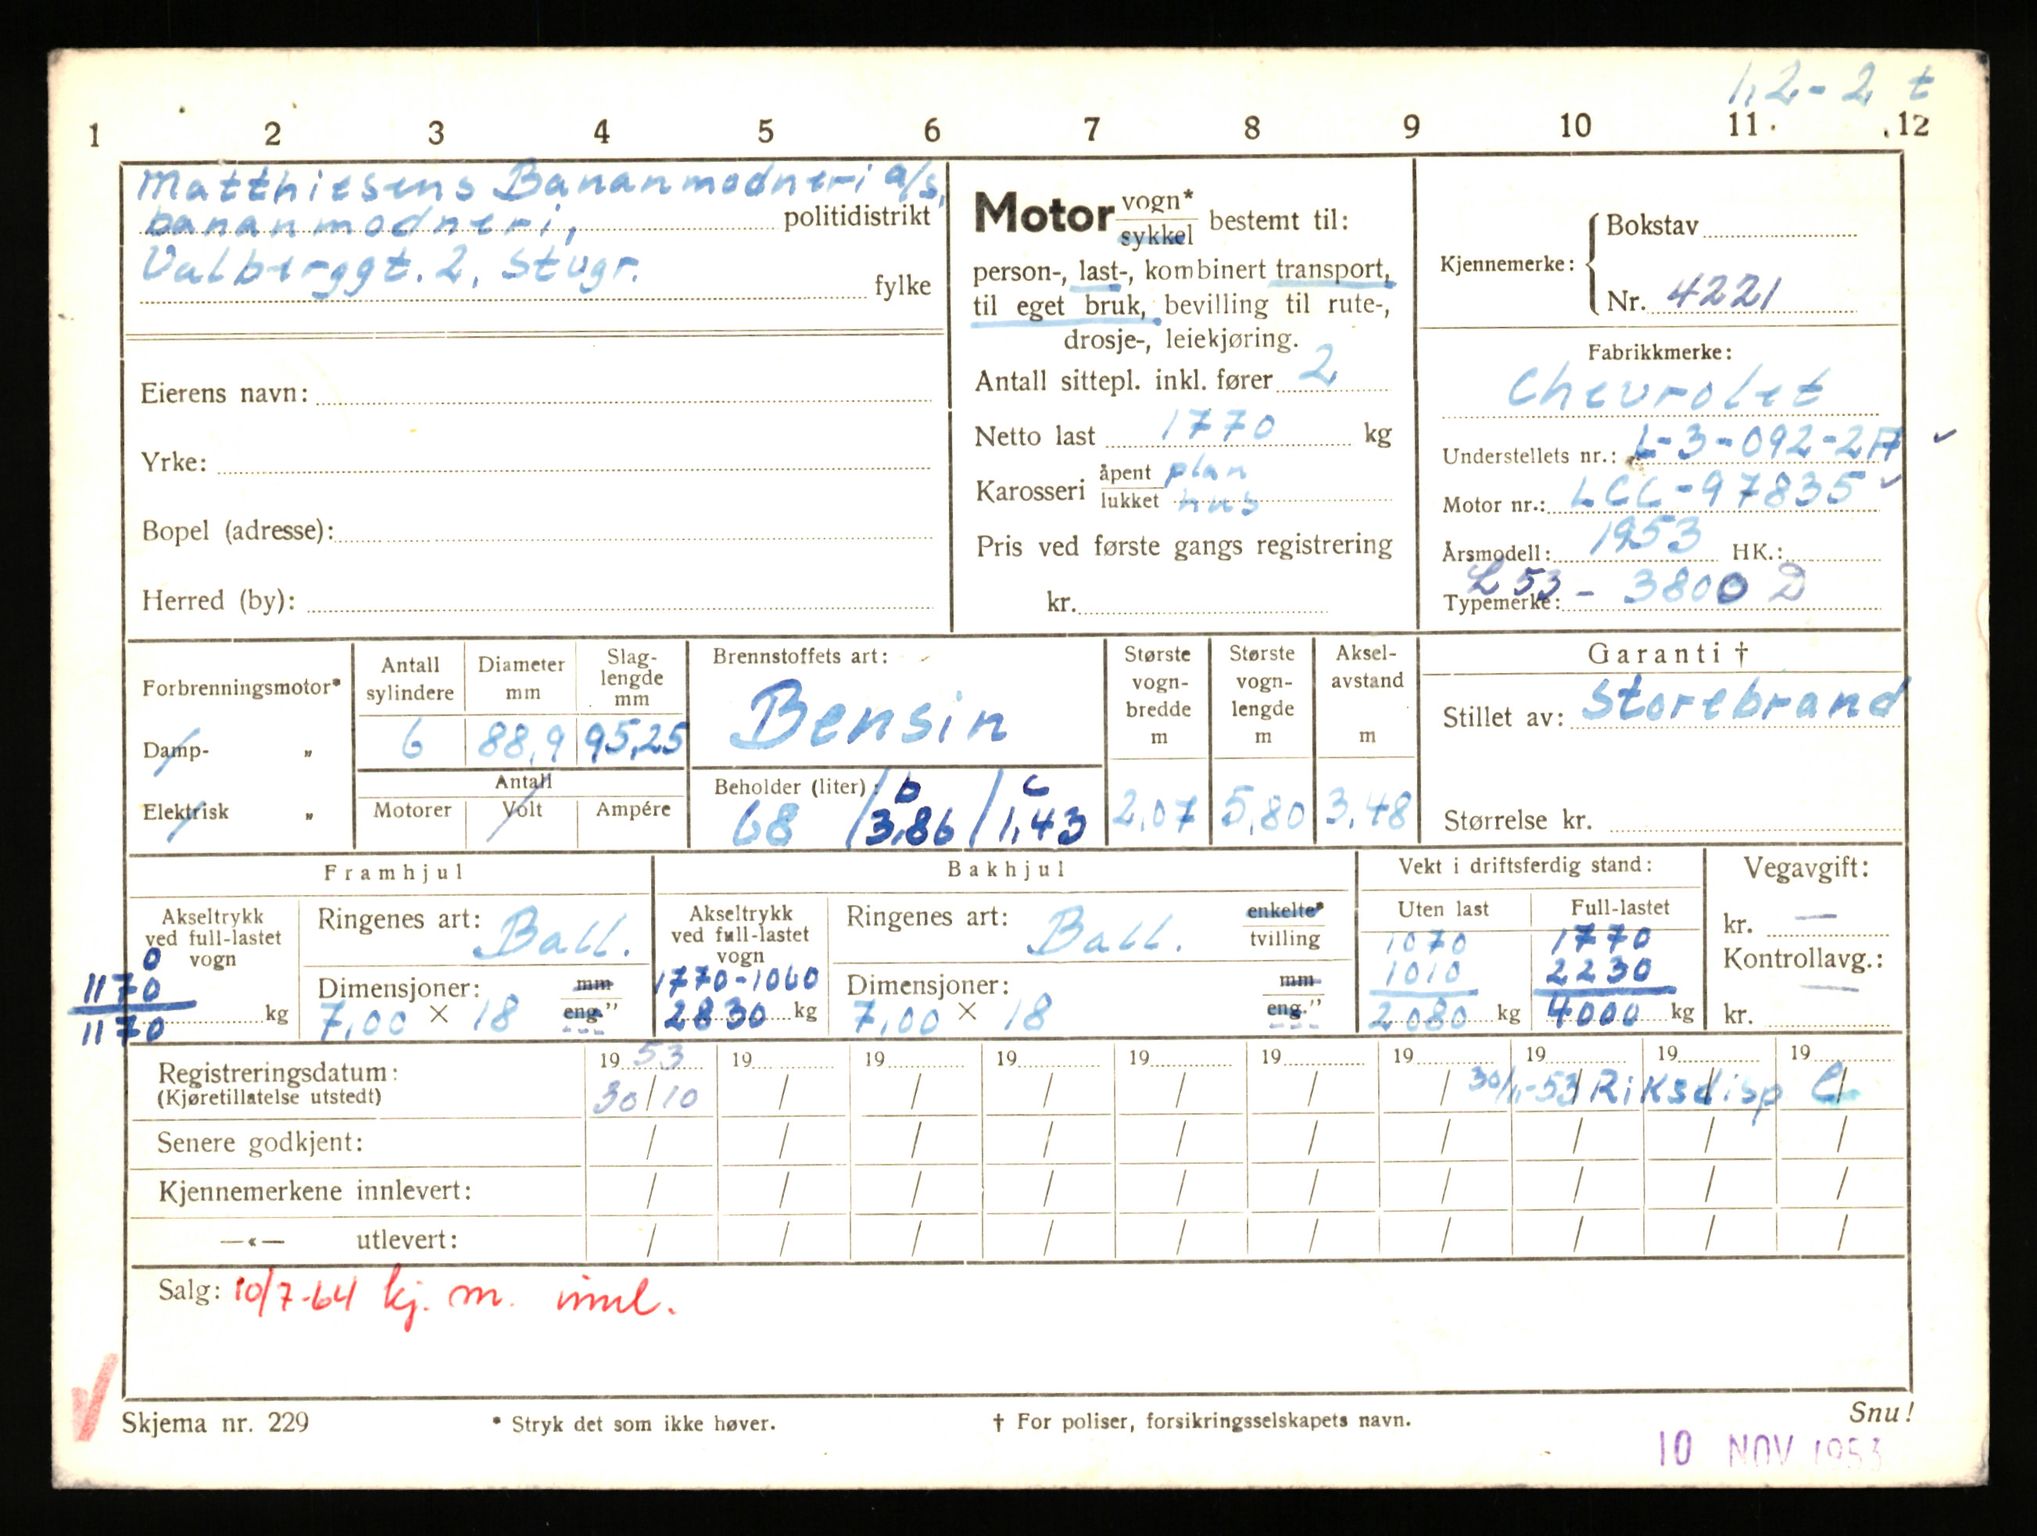 1,2-2 t
1 2 3 4 5 6 7 8 9 10 11 12
Matthiesens Bananmodneri a/s,
bananmodneri, politidistrikt
Valberggt. 2, Stvgr. fylke
Eierens navn:
Yrke:
Bopel (adresse):
Herred (by):
Motor vogn* sykkel bestemt til:
person-, last-, kombinert transport,
til eget bruk, bevilling til rute-,
drosje-, leiekjøring.
Antall sittepl. inkl. fører 2
Netto last 1770 kg
Karosseri åpent plan
lukket hus
Pris ved første gangs registrering
kr.
Kjennemerke: Bokstav
Nr. 4221
Fabrikkmerke:
Chevrolet
Understellets nr.: L-3-092-2A
Motor nr.: LCC-97835
Årsmodell: 1953 HK.:
Typemerke: L 53 - 3800 D
Forbrenningsmotor*
Damp- „
Elektrisk „
Antall sylindere
6
Diameter mm
88,9
Slag-lengde mm
95,25
Antall
Motorer Volt Ampére
Brennstoffets art:
Bensin
Beholder (liter): b c
68 /3,86 /1,43
Største vogn-bredde m
2,07
Største vogn-lengde m
5,80
Aksel-avstand m
3,48
Garanti †
Stillet av: Storebrand
Størrelse kr.
Framhjul
Akseltrykk
ved full-lastet
vogn
0
1170
1170 kg
Ringenes art: Ball.
Dimensjoner: mm
7,00 × 18 eng."
Bakhjul
Akseltrykk
ved full-lastet
vogn
1770-1060
2830 kg
Ringenes art: Ball. enkelte* tvilling
Dimensjoner: mm
7,00 × 18 eng."
Vekt i driftsferdig stand:
Uten last
1070
1010
2080 kg
Full-lastet
1770
2230
4000 kg
Vegavgift:
kr. —
Kontrollavg.:
—
kr.
Registreringsdatum: 19 53 19 19 19 19 19 19 19 19 19
(Kjøretillatelse utstedt) 30/10 / / / / / / 30/1-53 Riksdisp
Senere godkjent: / / / / / / / / / /
Kjennemerkene innlevert: / / / / / / / / / /
—«— utlevert: / / / / / / / / / /
Salg: 10/7-64 kj. m. innl.
Skjema nr. 229 * Stryk det som ikke høver. † For poliser, forsikringsselskapets navn. Snu!
10 NOV 1953